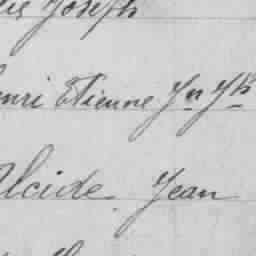 Joseph
enri Etienne Jn Jh
Alcide Jean